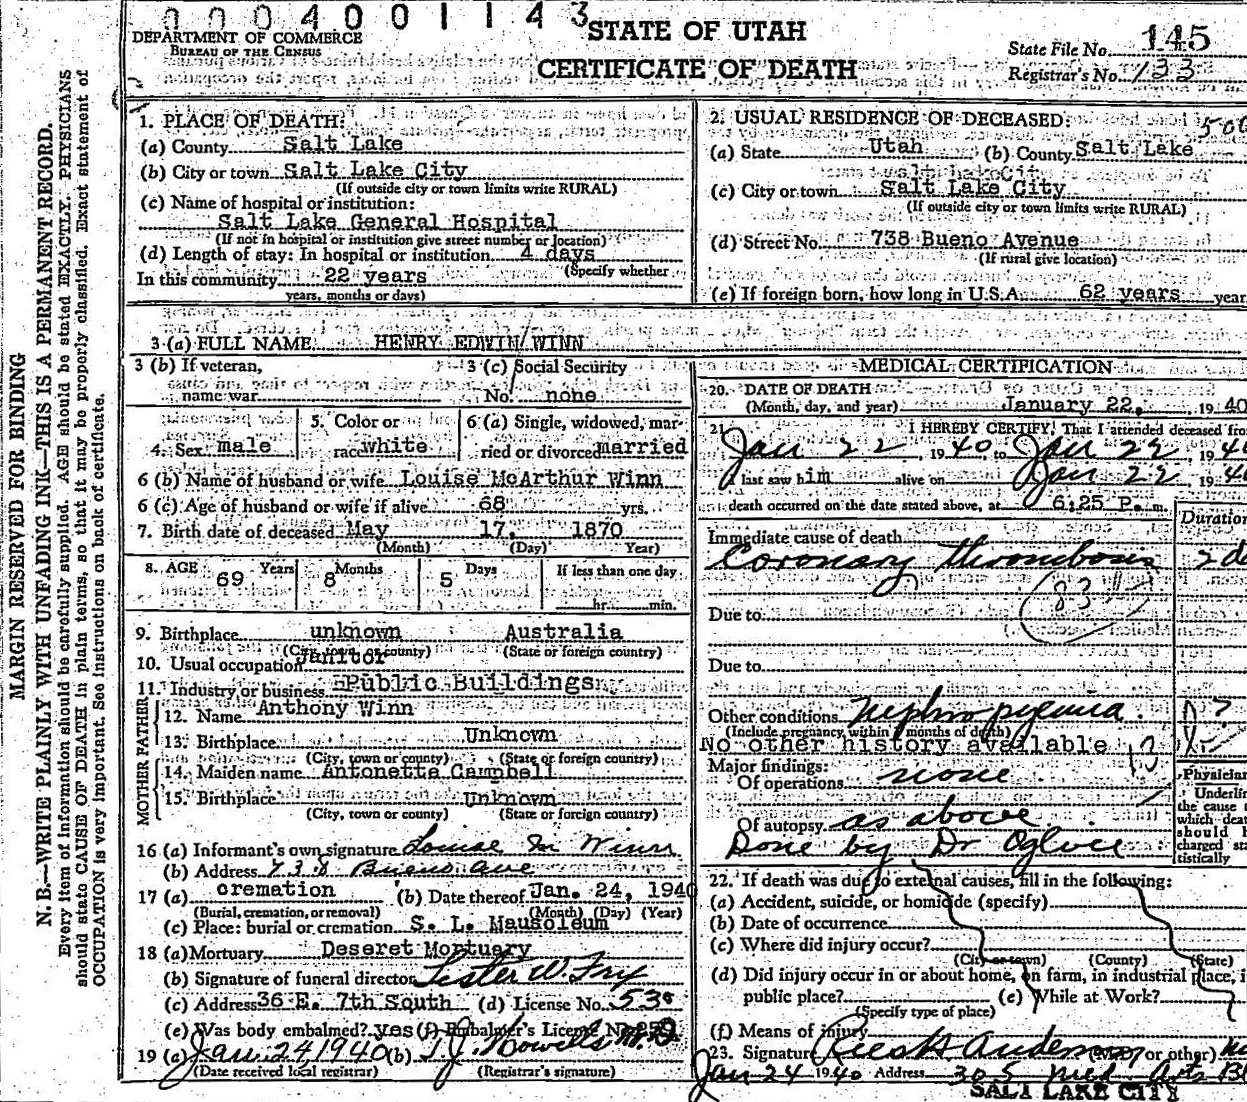 0004001143
STATE OF UTAH
DEPARTMENT OF COMMERCE
BUREAU OF THE CENSUS
CERTIFICATE OF DEATH
State File No. 145
Registrar's No. 133
MARGIN RESERVED FOR BINDING
N. B.—WRITE PLAINLY WITH UNFADING INK—THIS IS A PERMANENT RECORD.
Every item of information should be carefully supplied. AGE should be stated EXACTLY. PHYSICIANS
should state CAUSE OF DEATH in plain terms, so that it may be properly classified. Exact statement of
OCCUPATION is very important. See instructions on back of certificate.
1. PLACE OF DEATH:
(a) County Salt Lake
(b) City or town Salt Lake City
(If outside city or town limits write RURAL)
(c) Name of hospital or institution:
Salt Lake General Hospital
(If not in hospital or institution give street number or location)
(d) Length of stay: In hospital or institution 4 days
(Specify whether
In this community 22 years
years, months or days)
2. USUAL RESIDENCE OF DECEASED:
(a) State Utah (b) County Salt Lake
(c) City or town Salt Lake City
(If outside city or town limits write RURAL)
(d) Street No. 738 Bueno Avenue
(If rural give location)
(e) If foreign born, how long in U.S.A. 62 years year
3 (a) FULL NAME HENRY EDWIN WINN
3 (b) If veteran,
name war
3 (c) Social Security
No. none
4. Sex male
5. Color or
race white
6 (a) Single, widowed, mar-
ried or divorced married
6 (b) Name of husband or wife Louise McArthur Winn
6 (c) Age of husband or wife if alive 68 yrs.
7. Birth date of deceased May 17, 1870
(Month) (Day) Year)
8. AGE 69 Years 8 Months 5 Days If less than one day
hr. min.
9. Birthplace unknown Australia
(City, town, or county) (State or foreign country)
10. Usual occupation Janitor
11. Industry or business Public Buildings
FATHER
12. Name Anthony Winn
13. Birthplace Unknown
(City, town or county) (State or foreign country)
MOTHER
14. Maiden name Antonetta Campbell
15. Birthplace Unknown
(City, town or county) (State or foreign country)
16 (a) Informant's own signature Louise M Winn
(b) Address 738 Bueno Ave
17 (a) cremation (b) Date thereof Jan. 24, 1940
(Burial, cremation, or removal) (Month) (Day) (Year)
(c) Place: burial or cremation S. L. Mausoleum
18 (a) Mortuary Deseret Mortuary
(b) Signature of funeral director Lester W. Fry
(c) Address 36 E. 7th South (d) License No. 530
(e) Was body embalmed? yes (f) Embalmer's License No.
19 (a) Jan. 24 1940 (b) T J. Howells M.D.
(Date received local registrar) (Registrar's signature)
MEDICAL CERTIFICATION
20. DATE OF DEATH
(Month, day, and year) January 22, 1940
21. I HEREBY CERTIFY, That I attended deceased from
Jan 22, 1940 to Jan 22, 1940
I last saw him alive on Jan 22, 1940
death occurred on the date stated above, at 6:25 P. m.
Duration
Immediate cause of death
Coronary thrombosis
Due to
Due to
Other conditions Nephro pyemia
(Include pregnancy within 3 months of death)
No other history available
Major findings:
Of operations none
Of autopsy as above
Done by Dr Ogilvie
Physician
Underline
the cause
which dea
should b
charged sta
tistically
22. If death was due to external causes, fill in the following:
(a) Accident, suicide, or homicide (specify)
(b) Date of occurrence
(c) Where did injury occur?
(City or town) (County) (State)
(d) Did injury occur in or about home, on farm, in industrial place, i
public place? (e) While at Work?
(Specify type of place)
(f) Means of injury
23. Signature Rees H Anderson (M.D. or other)
Jan 24 1940 Address 305 Med Arts Bl
SALT LAKE CITY